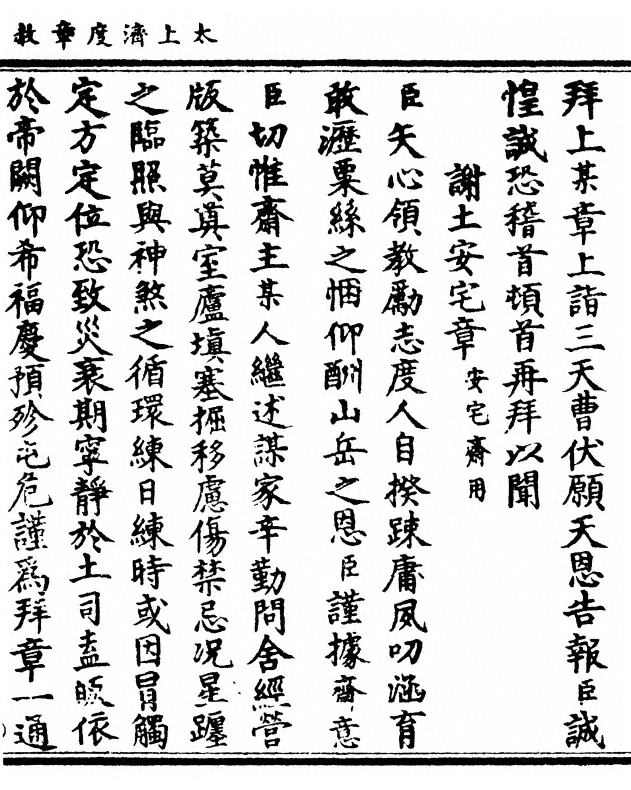 太上濟度章赦
拜上某章上詣三天曹伏願天恩告報臣誠
惶誠恐稽首頓首再拜以聞
謝土安宅章 安宅齋用
臣矢心領教勵志度人自揆踈庸夙叨涵育
敢瀝粟絲之悃仰酬山岳之恩臣謹據齋意
臣切惟齋主某人繼述謀家辛勤問舍經營
版築莫奠室廬塡塞掘移慮傷禁忌况星躔
之臨照與神煞之循環練日練時或因冐觸
定方定位恐致災衰期寧靜於土司盍皈依
於帝闕仰希福慶預殄屯危謹爲拜章一通